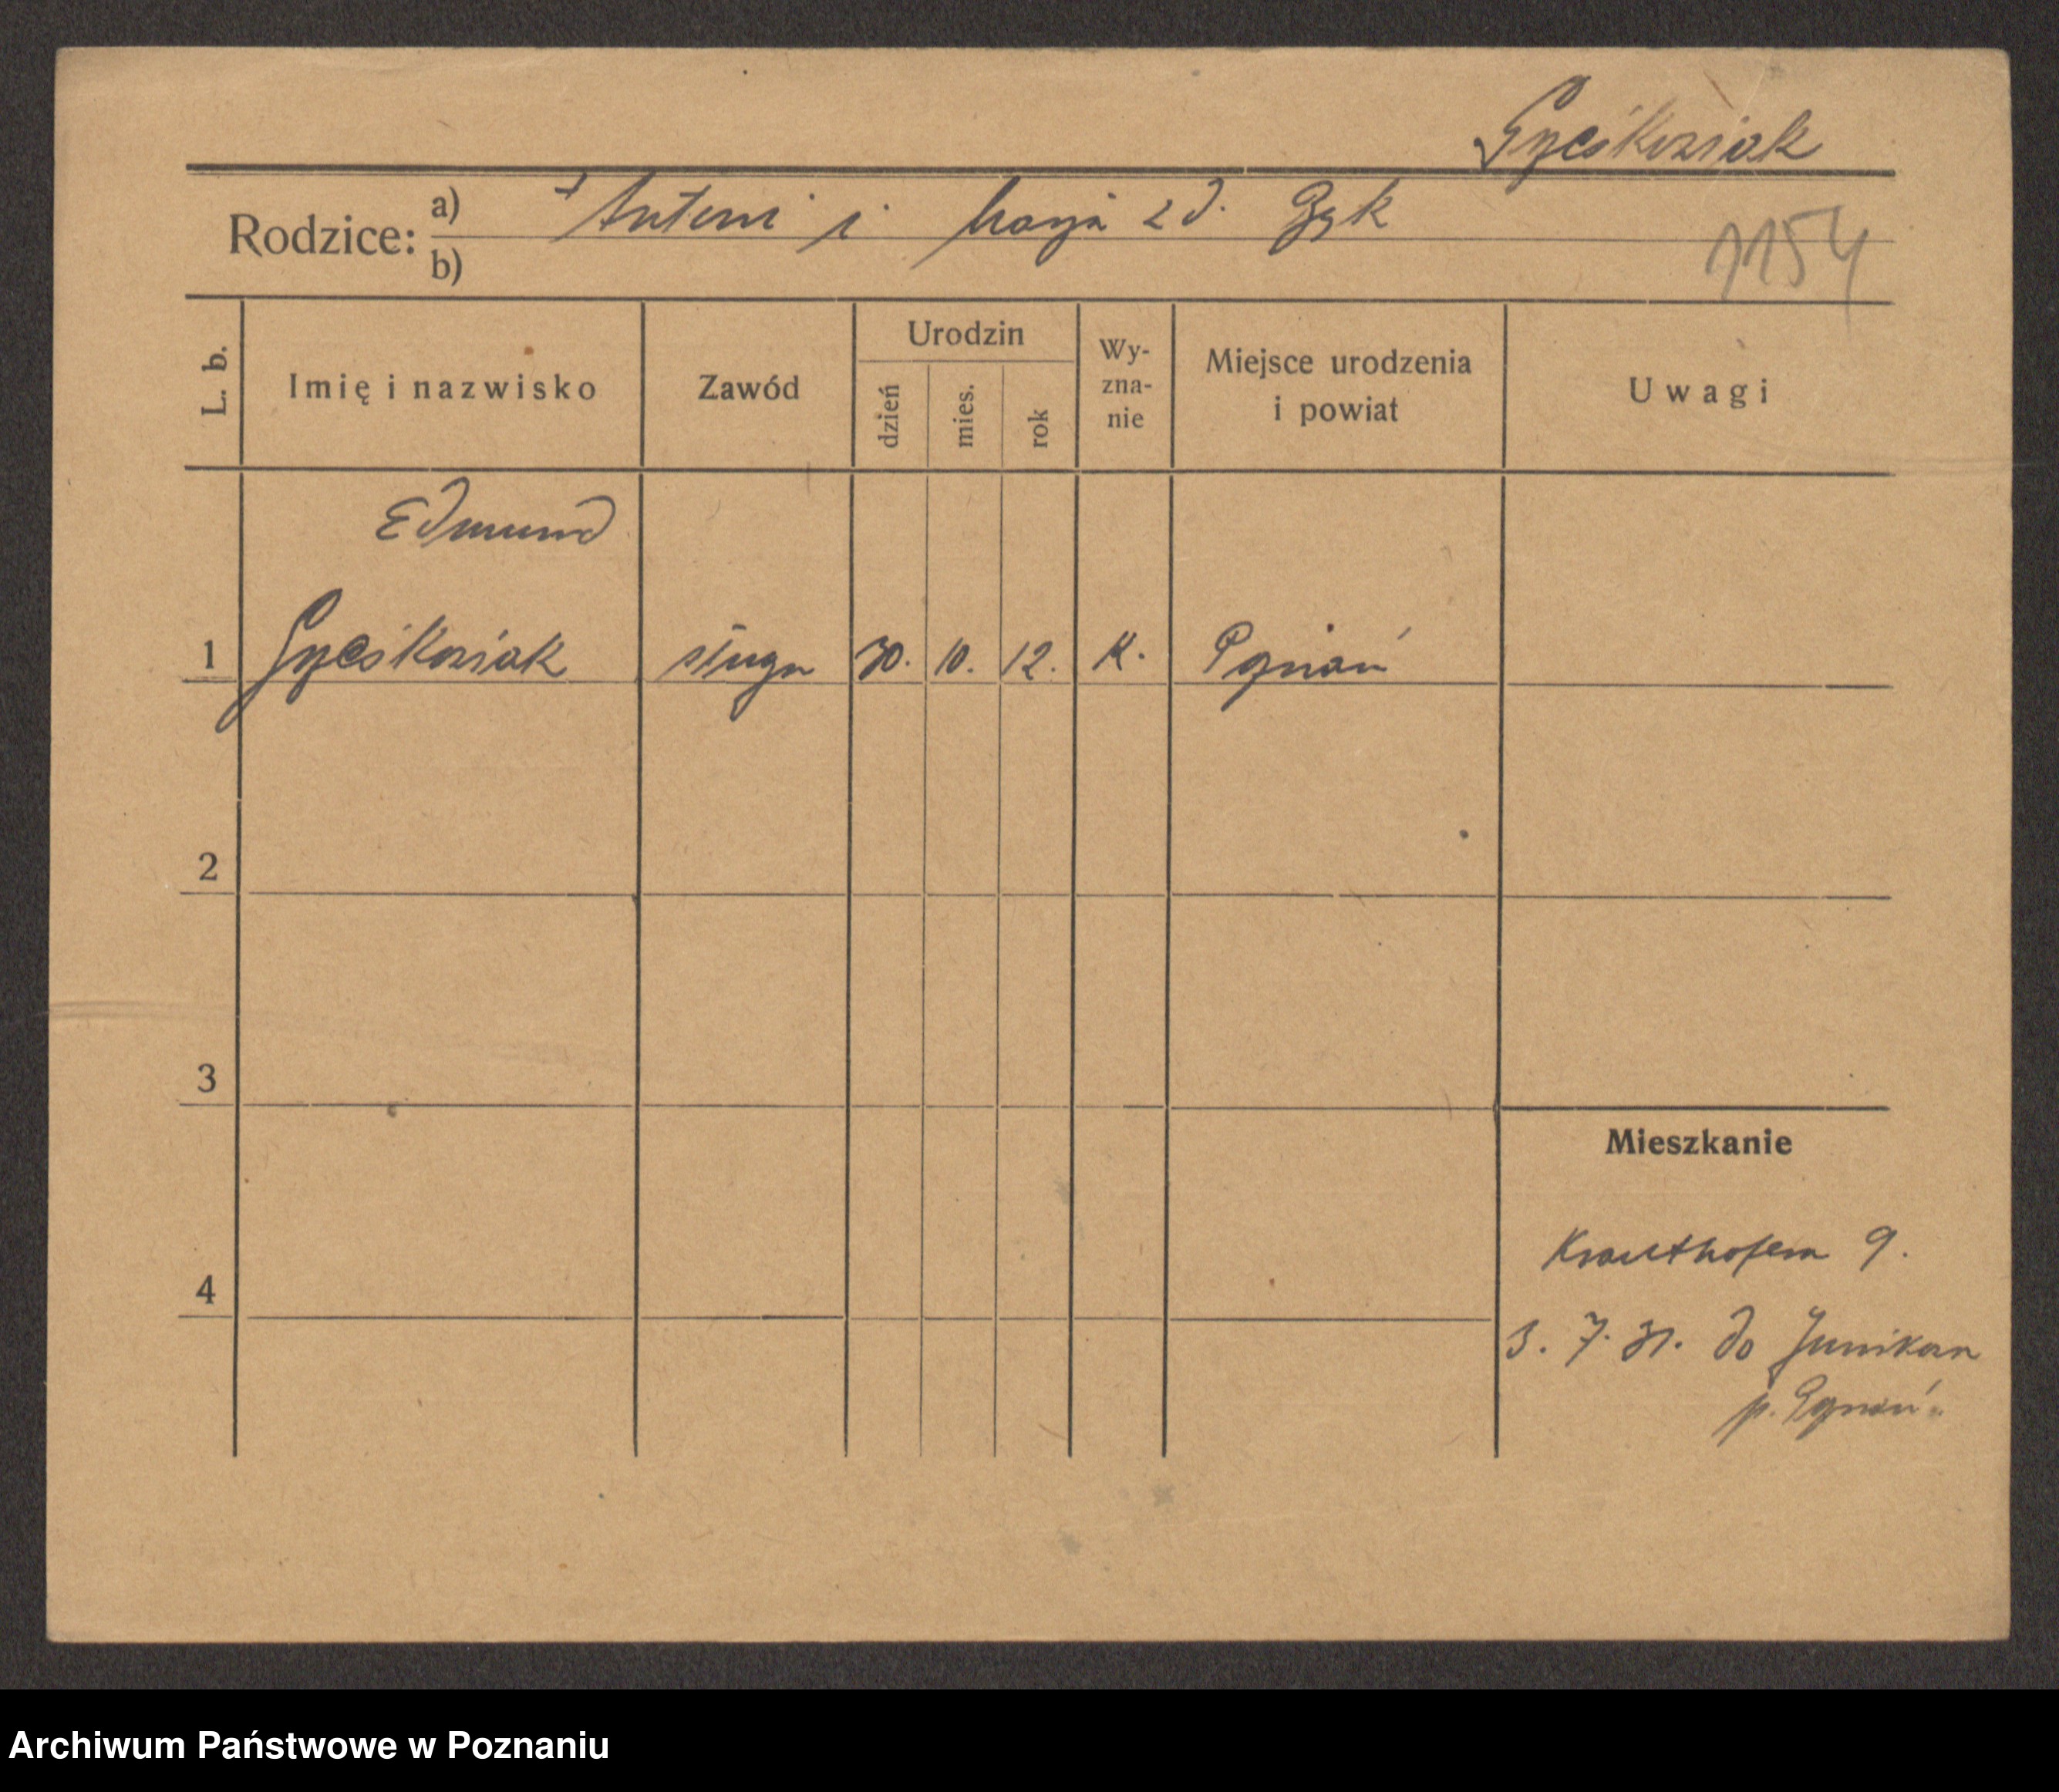 Gyeśkoziak
Rodzice:
a) + Antoni i Marja z d. Bąk
b)
1154
L. b.
Imię i nazwisko
Zawód
Urodzin
dzień
mies.
rok
Wy-
zna-
nie
Miejsce urodzenia
i powiat
Uwagi
Edmund
1 sługa 30. 10. 12. K. Poznań
2
3
4
Mieszkanie
Krauthofera 9.
3. 7. 31. do Junikowa
p. Poznań.
Archiwum Państwowe w Poznaniu